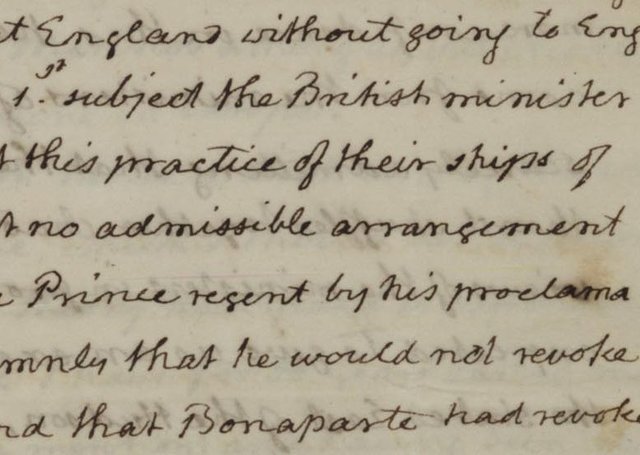 t England without going to Eng
1.st subject the British minister
t this practice of their ships of
t no admissible arrangement
e Prince regent by his proclama
mnly that he would not revoke
nd that Bonaparte had revoke